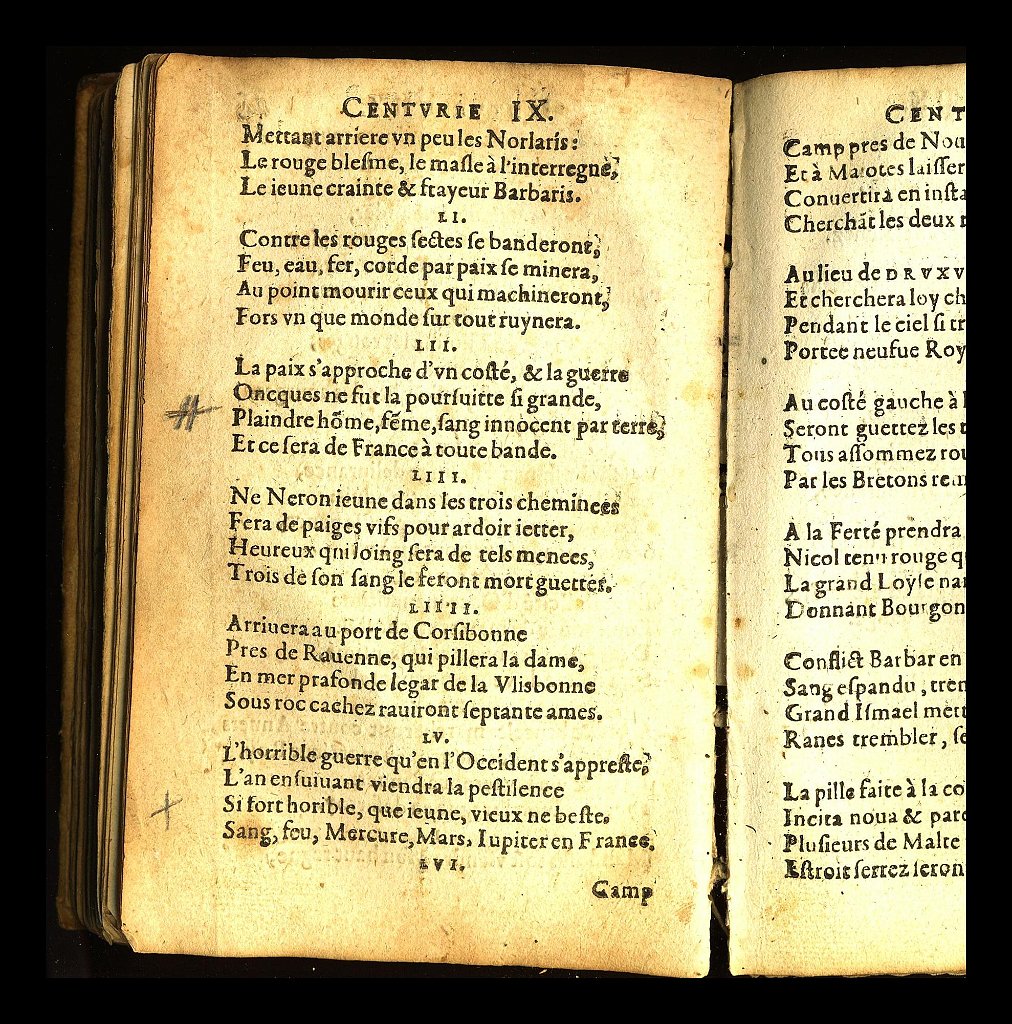 CENTVRIE IX.
Mettant arriere vn peu les Norlaris:
Le rouge blesme, le masle à l'interregne,
Le ieune crainte & frayeur Barbaris.
LI.
Contre les rouges sectes se banderont,
Feu, eau, fer, corde par paix se minera,
Au point mourir ceux qui machineront,
Fors vn que monde sur tout ruynera.
LII.
La paix s'approche d'vn costé, & la guerre
Oncques ne fut la poursuitte si grande,
Plaindre hõme, fẽme, sang innocent par terre,
Et ce sera de France à toute bande.
LIII.
Ne Neron ieune dans les trois cheminees
Fera de paiges vifs pour ardoir ietter,
Heureux qui loing sera de tels menees,
Trois de son sang le feront mort guetter.
LIIII.
Arriuera au port de Corsibonne
Pres de Rauenne, qui pillera la dame,
En mer prafonde legar de la Vlisbonne
Sous roc cachez rauiront septante ames.
LV.
L'horrible guerre qu'en l'Occident s'appreste,
L'an ensuiuant viendra la pestilence
Si fort horible, que ieune, vieux ne beste,
Sang, feu, Mercure, Mars, Iupiter en France.
LVI.
Camp
CENT
Camp pres de Nou
Et à Maiotes laisser
Conuertira en insta
Cherchãt les deux
Au lieu de DRVXV
Et cherchera loy ch
Pendant le ciel si tr
Portee neufue Roy
Au costé gauche à l
Seront guettez les t
Tous assommez rou
Par les Bretons
A la Ferté prendra
Nicol tenu rouge q
La grand Loyse nai
Donnant Bourgon
Conflict Barbar en
Sang espandu, trem
Grand Ismael mett
Ranes trembler, se
La pille faite à la co
Incita noua & pare
Plusieurs de Malte
Estroit serrez seron